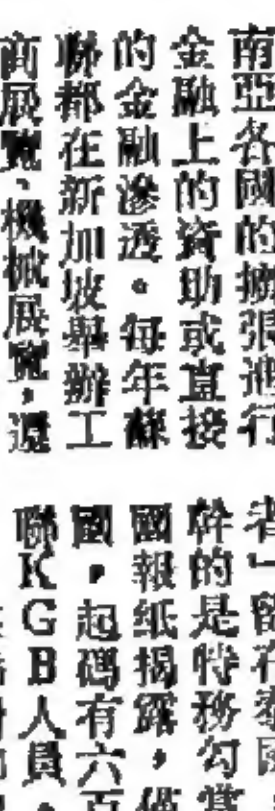 南亞各國的擴張進行
金融上的資助或直接
的金融滲透。每年蘇
聯都在新加坡舉辦工
商展覽、機械展覽，還
者「留在泰國
幹的是特務勾當
國報紙揭露，僅
國，起碼有六百
聯KGB人員，